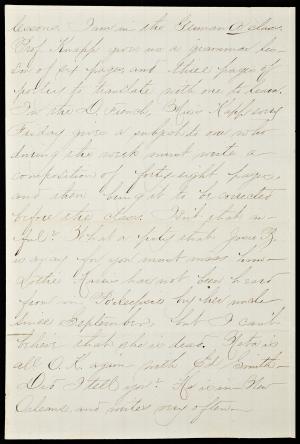 lessons. I am in the German A class.
Prof Knapp gives us a grammar les-
son of six pages, and three pages of
poetry to translate with one to learn.
In the D. French, Miss Kapp every
Friday gives a subject to one who
during the week must write a
composition of forty eight pages
and then bring it to be corrected
before the class. Isn't that aw-
ful? What a pity that your B.
is away for you must miss him.
Lottie has not been heard
from in by her uncle
since September, but I can't
believe that she is dead. Reba is
all O.K. again with Ed Smith—
Did I tell you? He is in New
Orleans, and writes very often—